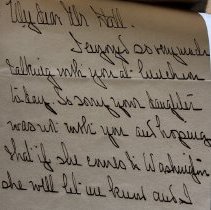 My dear Mr. Hall.
I enjoyed so very much
talking with you at luncheon
today. Is sorry your daughter
was not with you and hoping
that if she comes to Washington
she will let me know and I